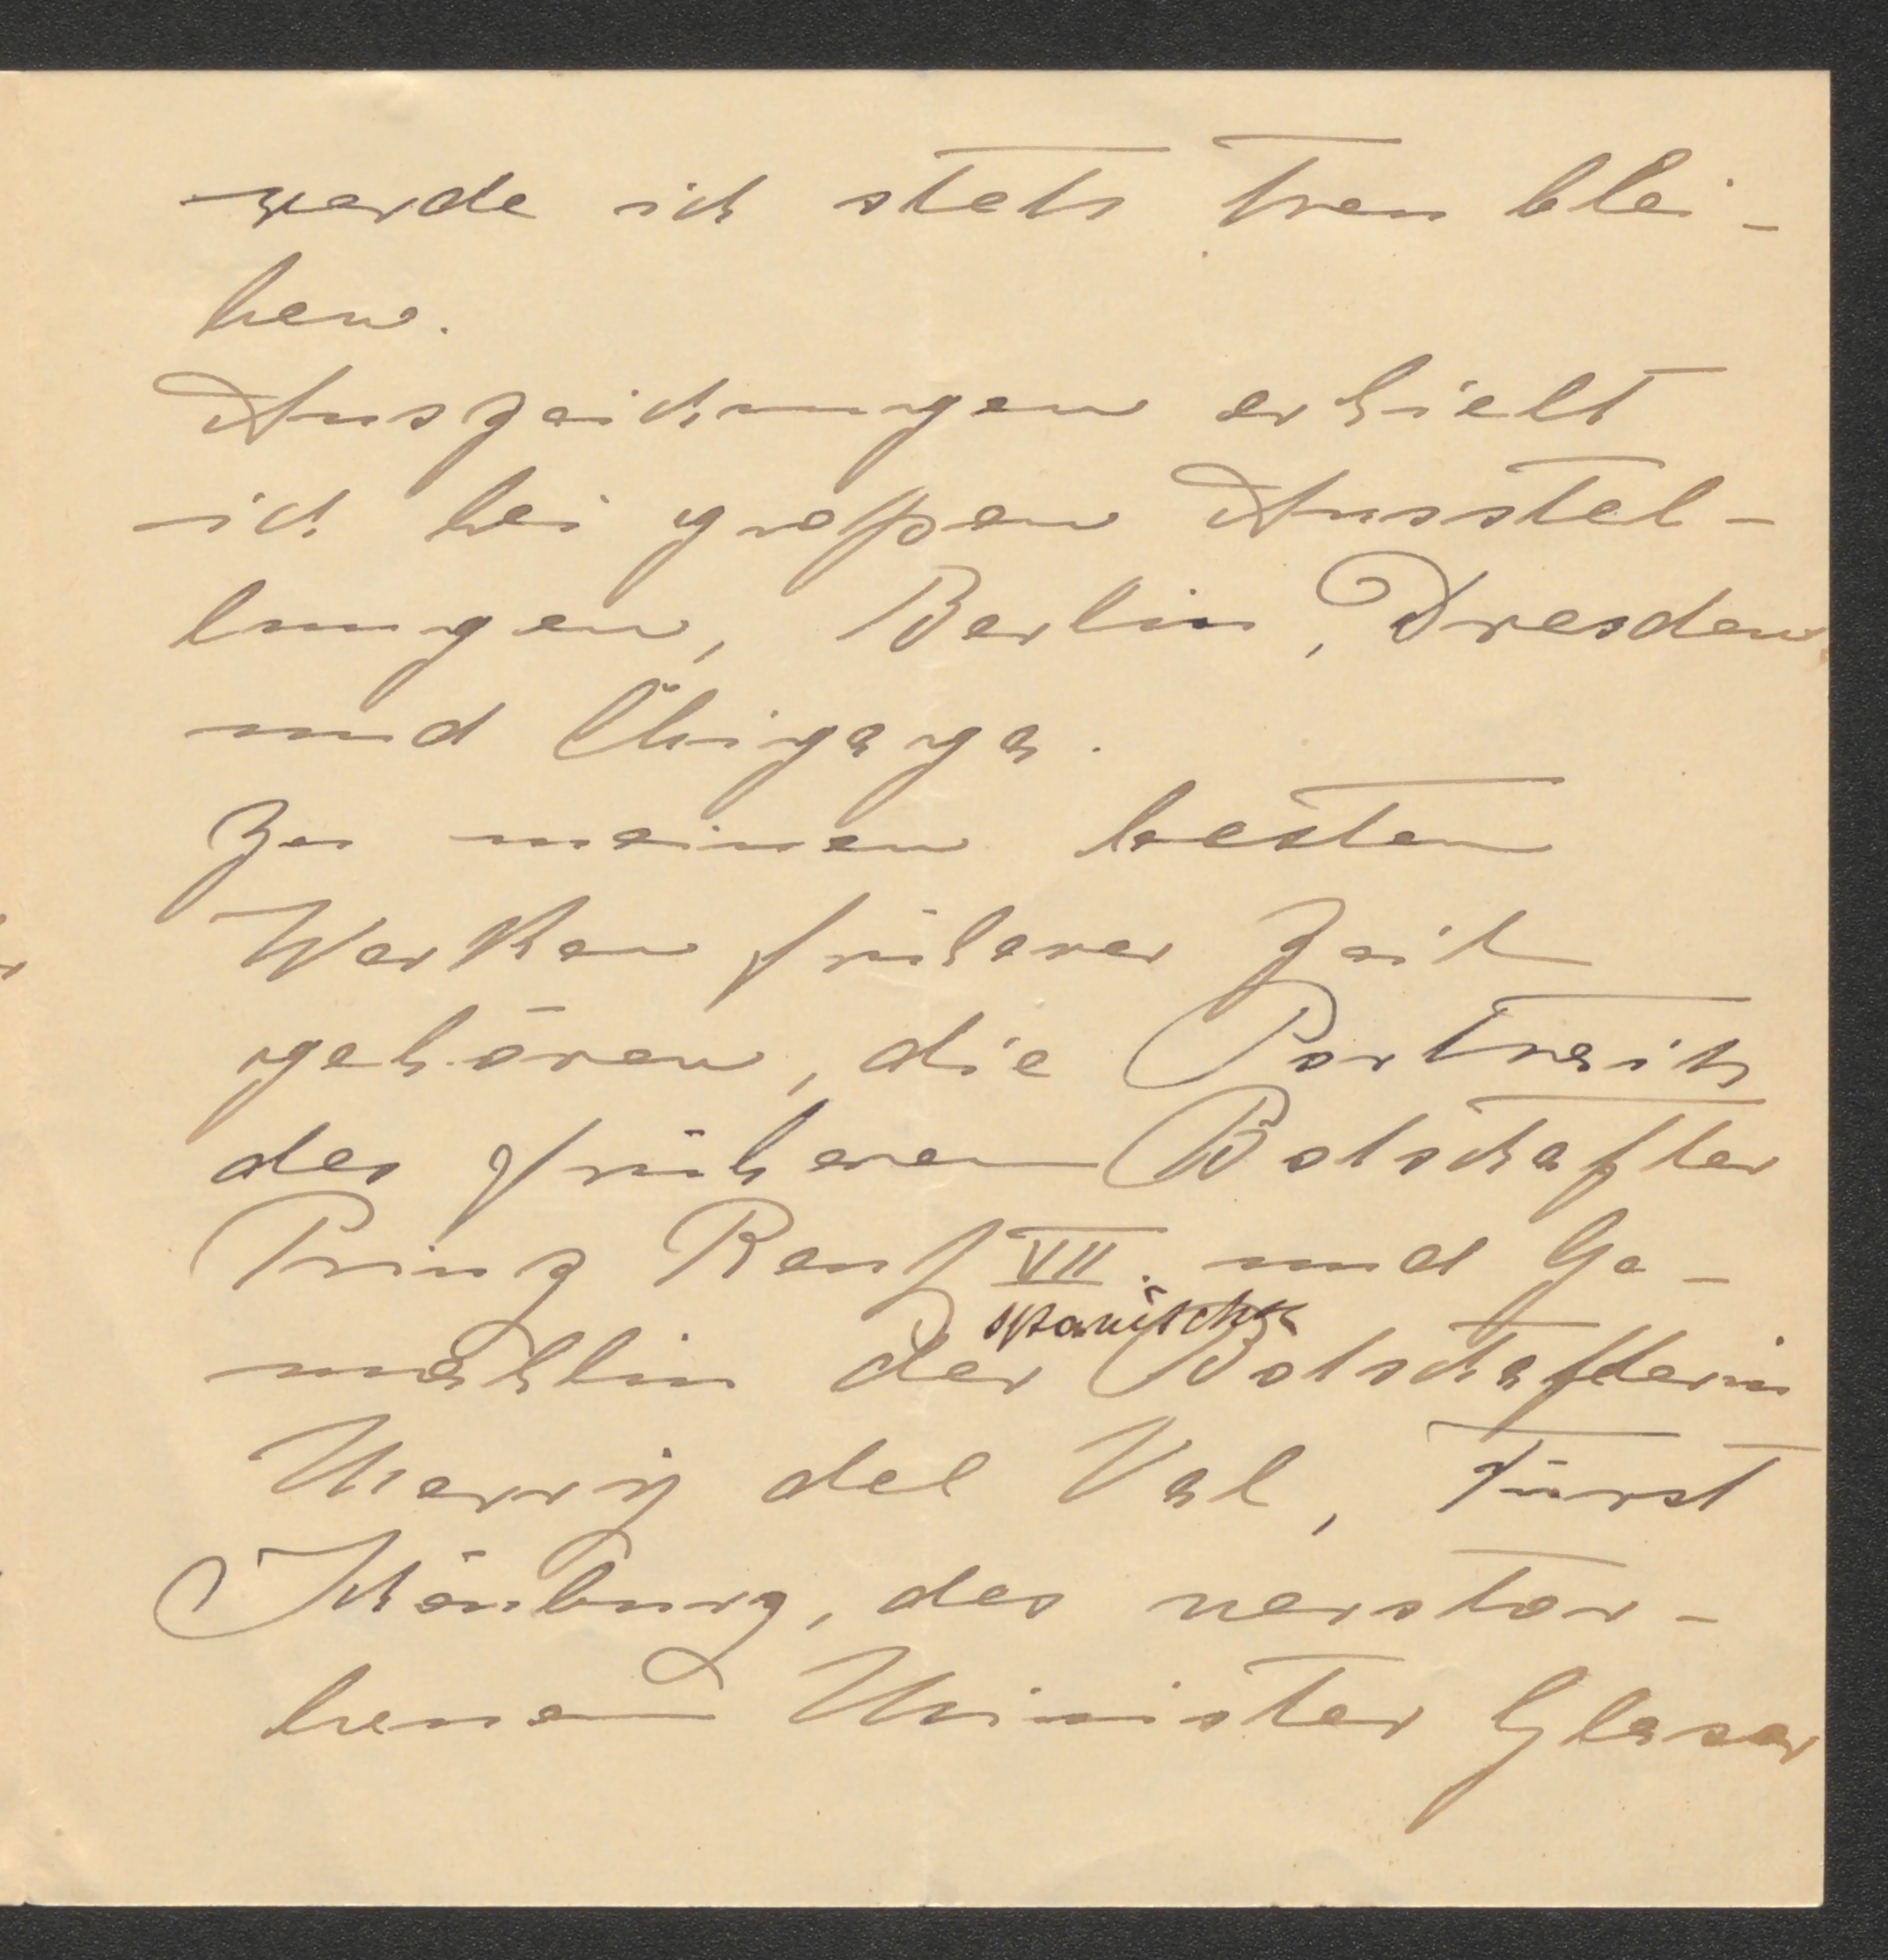 werde ich stets treu blei-
ben.
Auszeichnungen erhielt
ich bei großen Ausstel-
lungen, Berlin, Dresden
und Chigaga.
Zu meinen besten
Werken früherer Zeit
gehören, die Portraits
des früheren Botschafter
Prinz Reuß VII. und Ge-
spanische
mahlin der Botschafterin
Merry del Val, Fürst
Schönburg, des verstor-
benen Minister Glaser